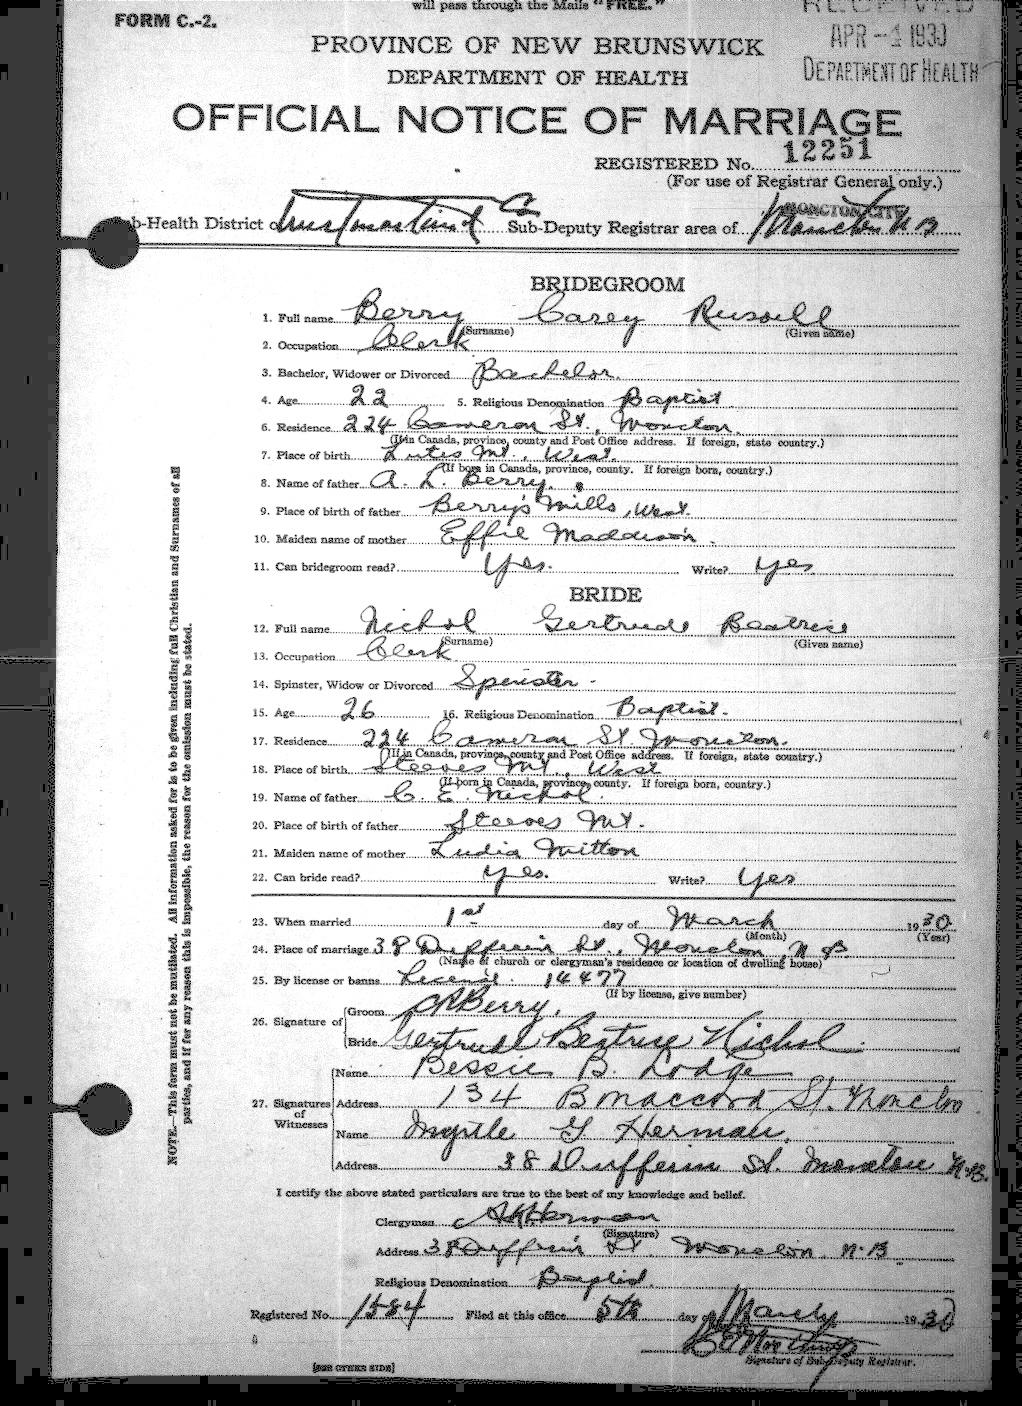 will pass through the Mails "FREE."
FORM C.-2.
RECEIVED
APR -1 1930
DEPARTMENT OF HEALTH
PROVINCE OF NEW BRUNSWICK
DEPARTMENT OF HEALTH
OFFICIAL NOTICE OF MARRIAGE
REGISTERED No. 12251
(For use of Registrar General only.)
Sub-Health District of Westmorland Co Sub-Deputy Registrar area of MONCTON CITY Moncton N B
BRIDEGROOM
1. Full name Berry Carey Russell
(Surname) (Given name)
2. Occupation Clerk
3. Bachelor, Widower or Divorced Bachelor.
4. Age 22 5. Religious Denomination Baptist
6. Residence 224 Cameron St., Moncton.
(If in Canada, province, county and Post Office address. If foreign, state country.)
7. Place of birth Lutes Mt., West.
(If born in Canada, province, county. If foreign born, country.)
8. Name of father A. L. Berry.
9. Place of birth of father Berry's Mills, West.
10. Maiden name of mother Effie Maddison.
11. Can bridegroom read? Yes. Write? Yes
BRIDE
12. Full name Nichol Gertrude Beatrice
(Surname) (Given name)
13. Occupation Clerk
14. Spinster, Widow or Divorced Spinster.
15. Age 26 16. Religious Denomination Baptist.
17. Residence 224 Cameron St. Moncton.
(If in Canada, province, county and Post Office address. If foreign, state country.)
18. Place of birth Steeves Mt., West
(If born in Canada, province, county. If foreign born, country.)
19. Name of father C. E. Nichol.
20. Place of birth of father Steeves Mt.
21. Maiden name of mother Ludia Mitton
22. Can bride read? Yes. Write? Yes
23. When married 1st day of March 1930
(Month) (Year)
24. Place of marriage 38 Dufferin St., Moncton, N. B
(Name of church or clergyman's residence or location of dwelling house)
25. By license or banns License. 14477
(If by license, give number)
26. Signature of Groom CRBerry.
Bride Gertrude Beatrice Nichol.
27. Signatures of Witnesses Name Bessie B. Lodge
Address 134 Bonaccord St. Moncton
Name Myrtle G Herman.
Address 38 Dufferin St. Moncton N.B.
I certify the above stated particulars are true to the best of my knowledge and belief.
Clergyman Herman
(Signature)
Address 38 Dufferin St. Moncton N.B
Religious Denomination Baptist.
Registered No. 1584 Filed at this office 5th day of March 1930
Signature of Sub-Deputy Registrar.
[SEE OTHER SIDE]
NOTE.—This form must not be mutilated. All information asked for is to be given including full Christian and Surnames of all
parties, and if for any reason this is impossible, the reason for the omission must be stated.